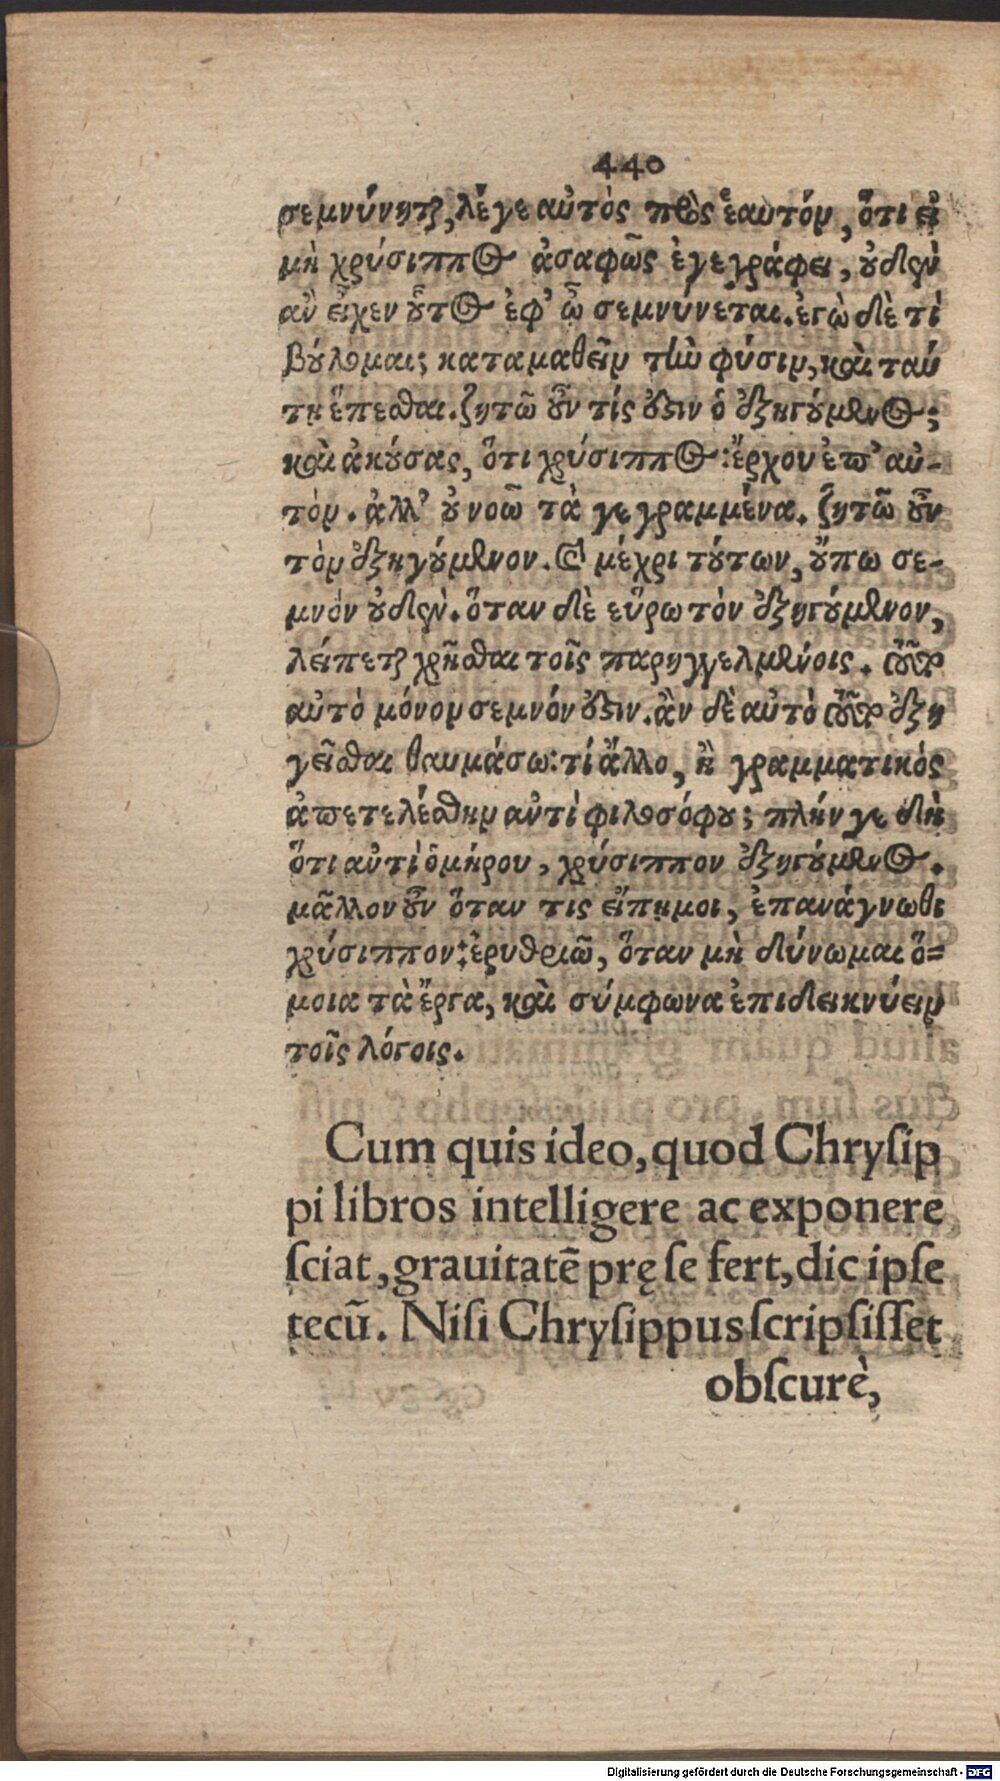 440
σεμνύνηται, λέγε αὐτὸς πρὸς ἑαυτόν, ὅτι εἰ
μὴ χρύσιππος ἀσαφῶς ἐγεγράφει, οὐδὲν
ἂν εἶχεν οὗτος ἐφ' ᾧ σεμνύνεται. ἐγὼ δὲ τί
βούλομαι; καταμαθεῖν τὴν φύσιν, καὶ ταύ
τῃ ἕπεσθαι. ζητῶ οὖν τίς ἐστιν ὁ ἐξηγούμενος;
καὶ ἀκούσας, ὅτι χρύσιππος: ἔρχου ἐπ' αὐ-
τόν. ἀλλ' οὐ νοῶ τὰ γεγραμμένα. ζητῶ οὖν
τὸν ἐξηγούμενον. καὶ μέχρι τούτων, οὔπω σε-
μνὸν οὐδέν. ὅταν δὲ εὕρω τὸν ἐξηγούμενον,
λείπεται χρῆσθαι τοῖς παρηγγελμένοις. τοῦτο
αὐτὸ μόνον σεμνόν ἐστιν. ἂν δὲ αὐτὸ τοῦτο ἐξη
γεῖσθαι θαυμάσω: τί ἄλλο, ἢ γραμματικός
ἀπετελέσθην ἀντὶ φιλοσόφου; πλήν γε δὴ
ὅτι ἀντὶ ὁμήρου, χρύσιππον ἐξηγούμενος.
μᾶλλον οὖν ὅταν τις εἴπῃ μοι, ἐπανάγνωθι
χρύσιππον: ἐρυθριῶ, ὅταν μὴ δύνωμαι ὅ=
μοια τὰ ἔργα, καὶ σύμφωνα ἐπιδεικνύειν
τοῖς λόγοις.
Cum quis ideo, quod Chryſip
pi libros intelligere ac exponere
ſciat, grauitatẽ pręſe fert, dic ipſe
tecũ. Niſi Chryſippus ſcripſiſſet
obſcurè,
Digitalisierung gefördert durch die Deutsche Forschungsgemeinschaft - DFG